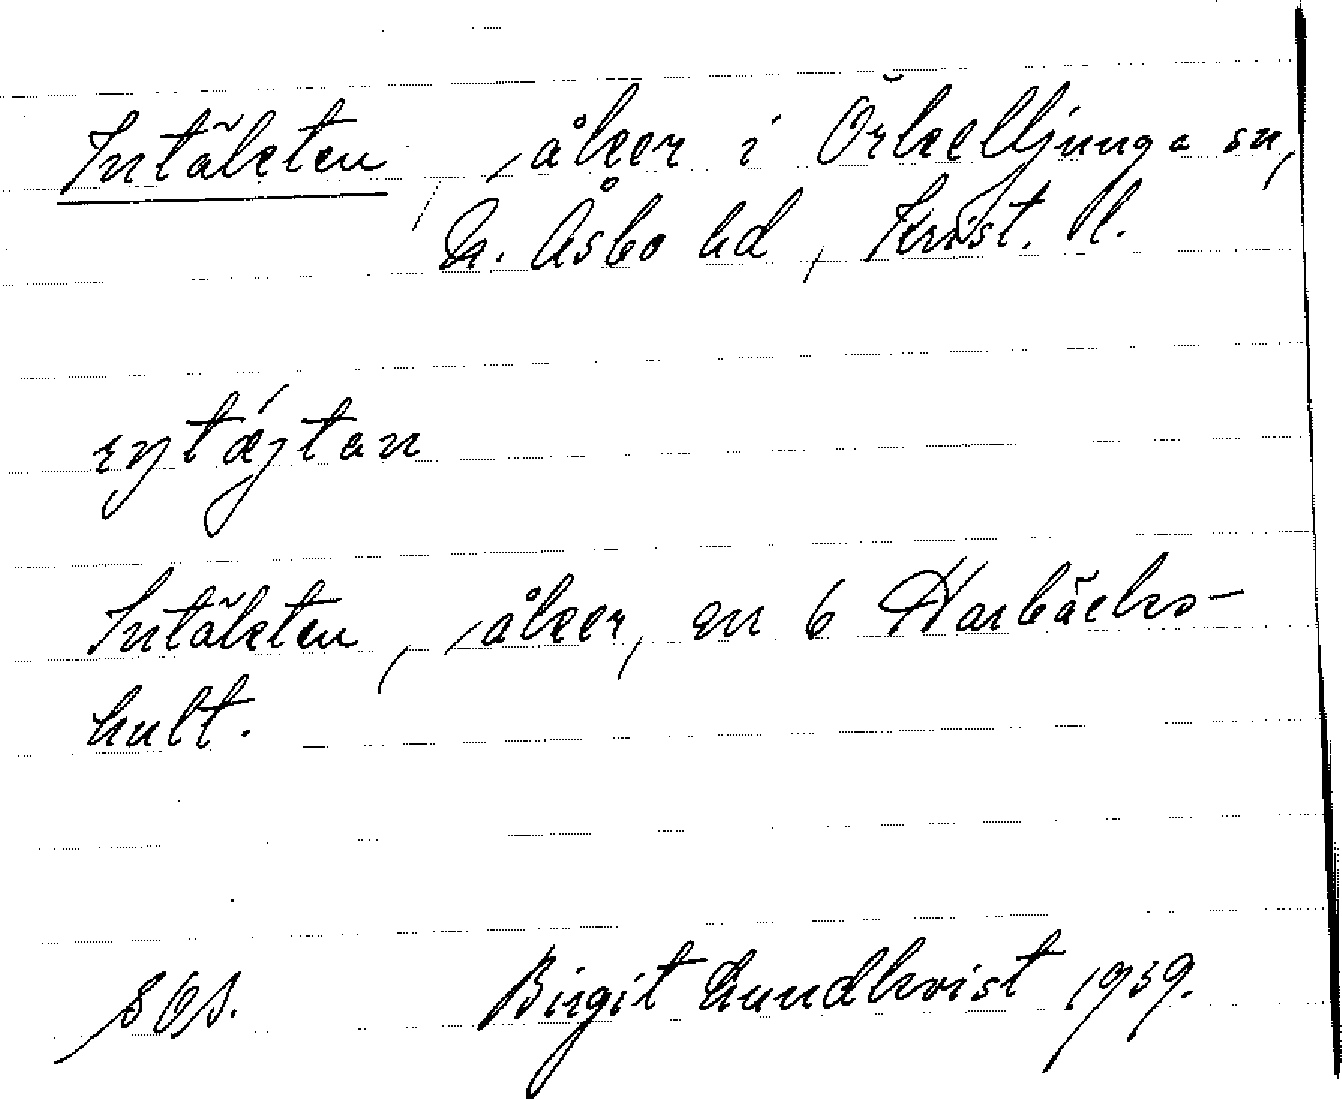 Intäkten, åker i Örkelljunga sn,
N. Åsbo hd, Krist. l.
Intäkten, åker, en 6 Harbäcks-
hult.
Birgit Lundkvist 1939.